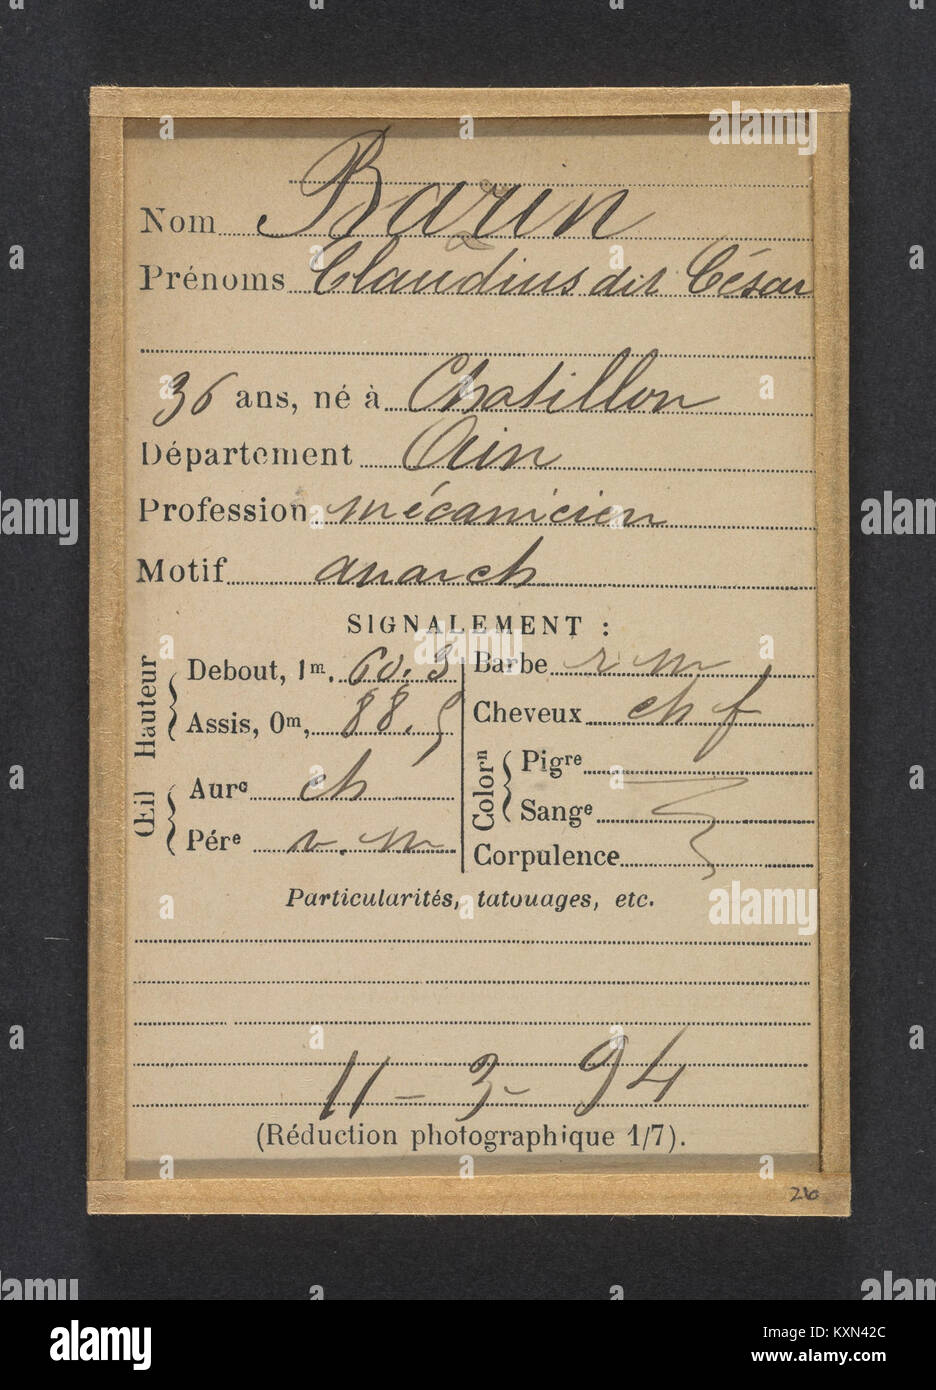 Nom Bazin
Prénoms Claudius dit César
36 ans, né à Chatillon
Département Ain
Profession mécanicien
Motif anarch
SIGNALEMENT :
Hauteur
Debout, 1m. 60.3
Assis, 0m, 88.5
Œil
Aure ch
Pére v. m
Barbe r m
Cheveux ch f
Colorn
Pigre
Sange
Corpulence
Particularités, tatouages, etc.
11 - 3 - 94
(Réduction photographique 1/7).
26
a alamy stock photo
alamy
Image ID: KXN42C
www.alamy.com